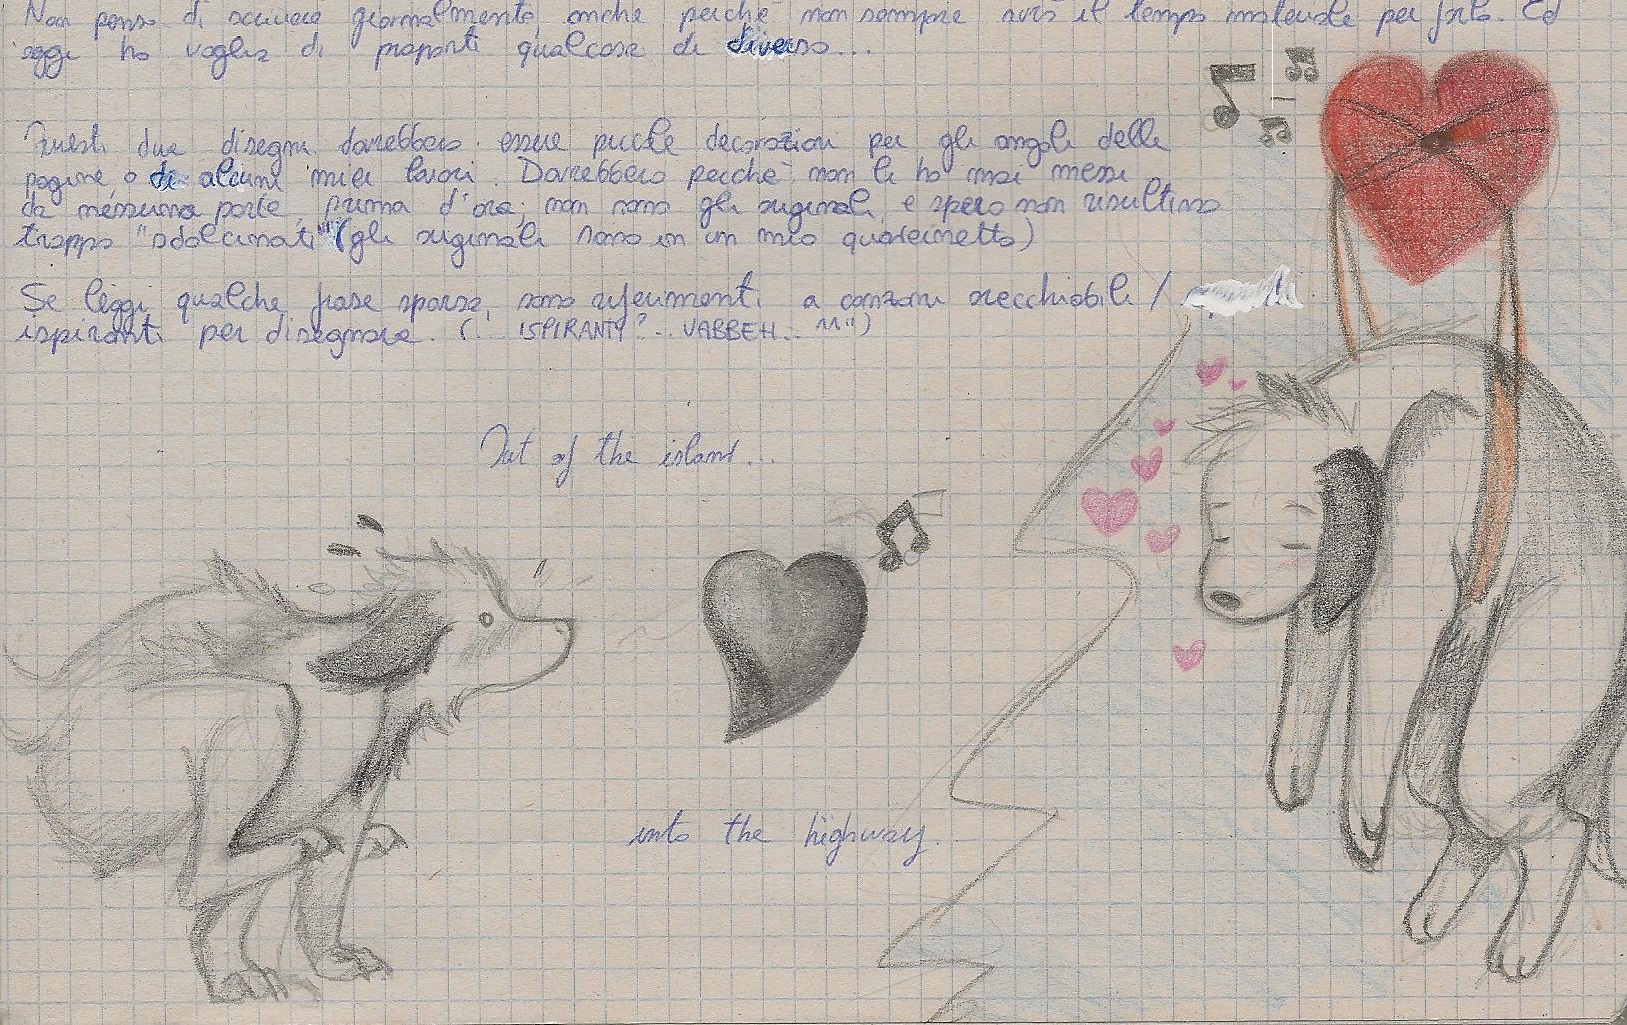 Non penso di scrivere giornalmente, anche perchè non sempre avrò il tempo materiale per farlo. Ed
oggi ho voglia di proporti qualcosa di diverso...
Questi due disegni dovrebbero essere piccole decorazioni per gli angoli delle
pagine, o di alcuni miei lavori. Dovrebbero perchè non li ho mai messi
da nessuna parte, prima d'ora; non sono gli originali, e spero non risultino
troppo "sdolcinati" (gli originali sono in un mio quadernetto)
Se leggi qualche frase sparsa, sono riferimenti a canzoni orecchiabili /
ispiranti per disegnare. (... ISPIRANTI?... VABBEH... ^^")
Out of the island...
into the highway.